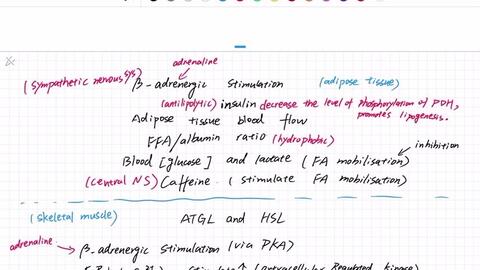 adrenaline
(sympathetic nervous sys) β-adrenergic stimulation (adipose tissue)
(antilipolytic) insulin decrease the level of phosphorylation of PDH,
promotes lipogenesis.
Adipose tissue blood flow
FFA/albumin ratio (hydrophobic)
inhibition
Blood [glucose] and lactate (FA mobilisation)
(central NS) Caffeine (stimulate FA mobilisation)
(skeletal muscle) ATGL and HSL
adrenaline
β-adrenergic stimulation (via PKA)
(extracellular Regulated kinase)